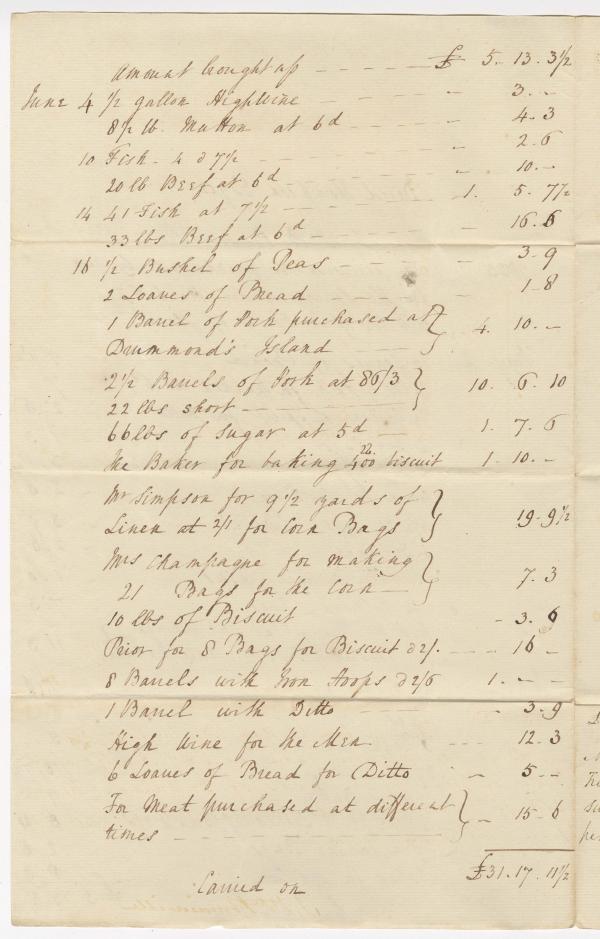 Amount brought up — £ 5. 13. 3½
June 4 ½ gallon Highwine — 3. -
8½ lb. Mutton at 6d — 4. 3
10 Fish - 4 @ 7½ — 2. 6
20 lb Beef at 6d — 10. -
14 41 Fish at 7½ — 1. 5. 7½
33 lbs Beef at 6d — 16. 6
16 ½ Bushel of Peas — 3. 9
2 Loaves of Bread — 1. 8
1 Barrel of Pork purchased at } 4. 10. -
Drummond's Island —
2½ Barrels of Pork at 86/3 } 10. 6. 10
22 lbs short —
66 lbs of Sugar at 5d — 1. 7. 6
The Baker for baking 400 biscuit 1. 10. -
Mr Simpson for 9½ yards of }
Linen at 2/1 for Corn Bags } 19. 9½
Mrs Champagne for making }
21 Bags for the Corn — } 7. 3
10 lbs of Biscuit - 3. 6
Prior for 8 Bags for Biscuit @ 2/. — 16 -
8 Barrels with Iron Hoops @ 2/6 1. - -
1 Barrel with Ditto — 3. 9
High Wine for the Men 12. 3
6 Loaves of Bread for Ditto — 5 - -
For Meat purchased at different } 15. 6
times —
£31. 17. 11½
Carried on